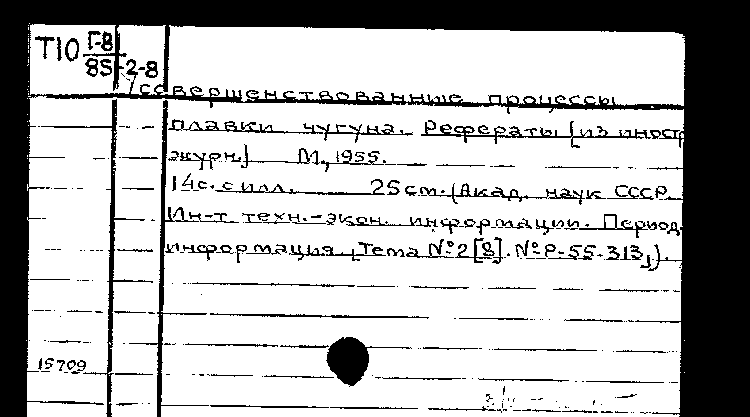 Т10 Г-8
85-2-8
Усовершенствованные процессы
плавки чугуна. Рефераты [из иностр
журн.] М., 1955.
14с. с илл. 25см. (Акад. наук СССР.
Ин-т техн.-экон. информации. Период.
информация. Тема №2[8]. №Р-55-313).
15709